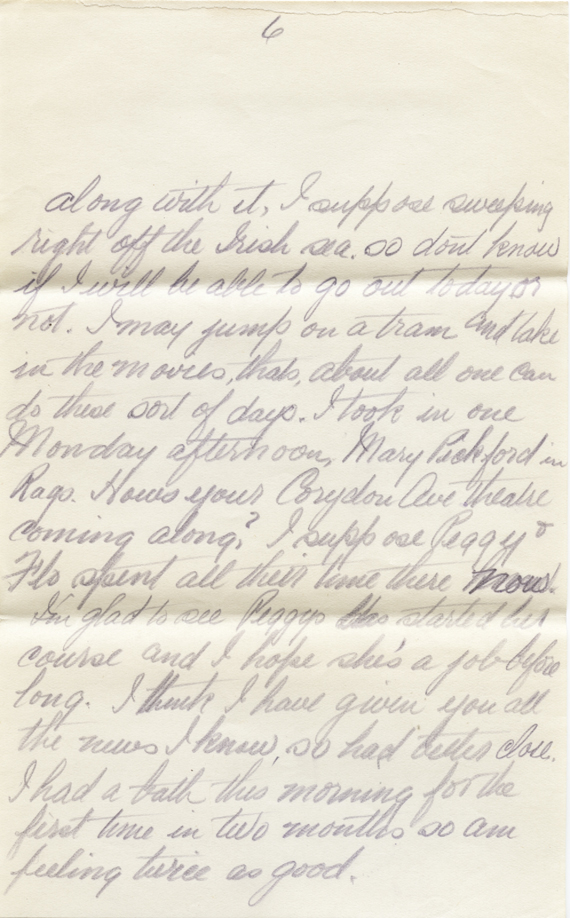 6
along with it, I suppose sweeping
right off the Irish sea. so dont know
if I will be able to go out today or
not. I may jump on a tram and take
in the movies, thats, about all one can
do these sort of days. I took in one
Monday afternoon, Mary Pickford in
Rags. Hows your Corydon Ave theatre
coming along? I suppose Peggy &
Flo spent all their time there now.
I'm glad to see Peggys has started her
course and I hope she's a job before
long. I think I have given you all
the news I know, so had better close.
I had a bath this morning for the
first time in two months so am
feeling twice as good.